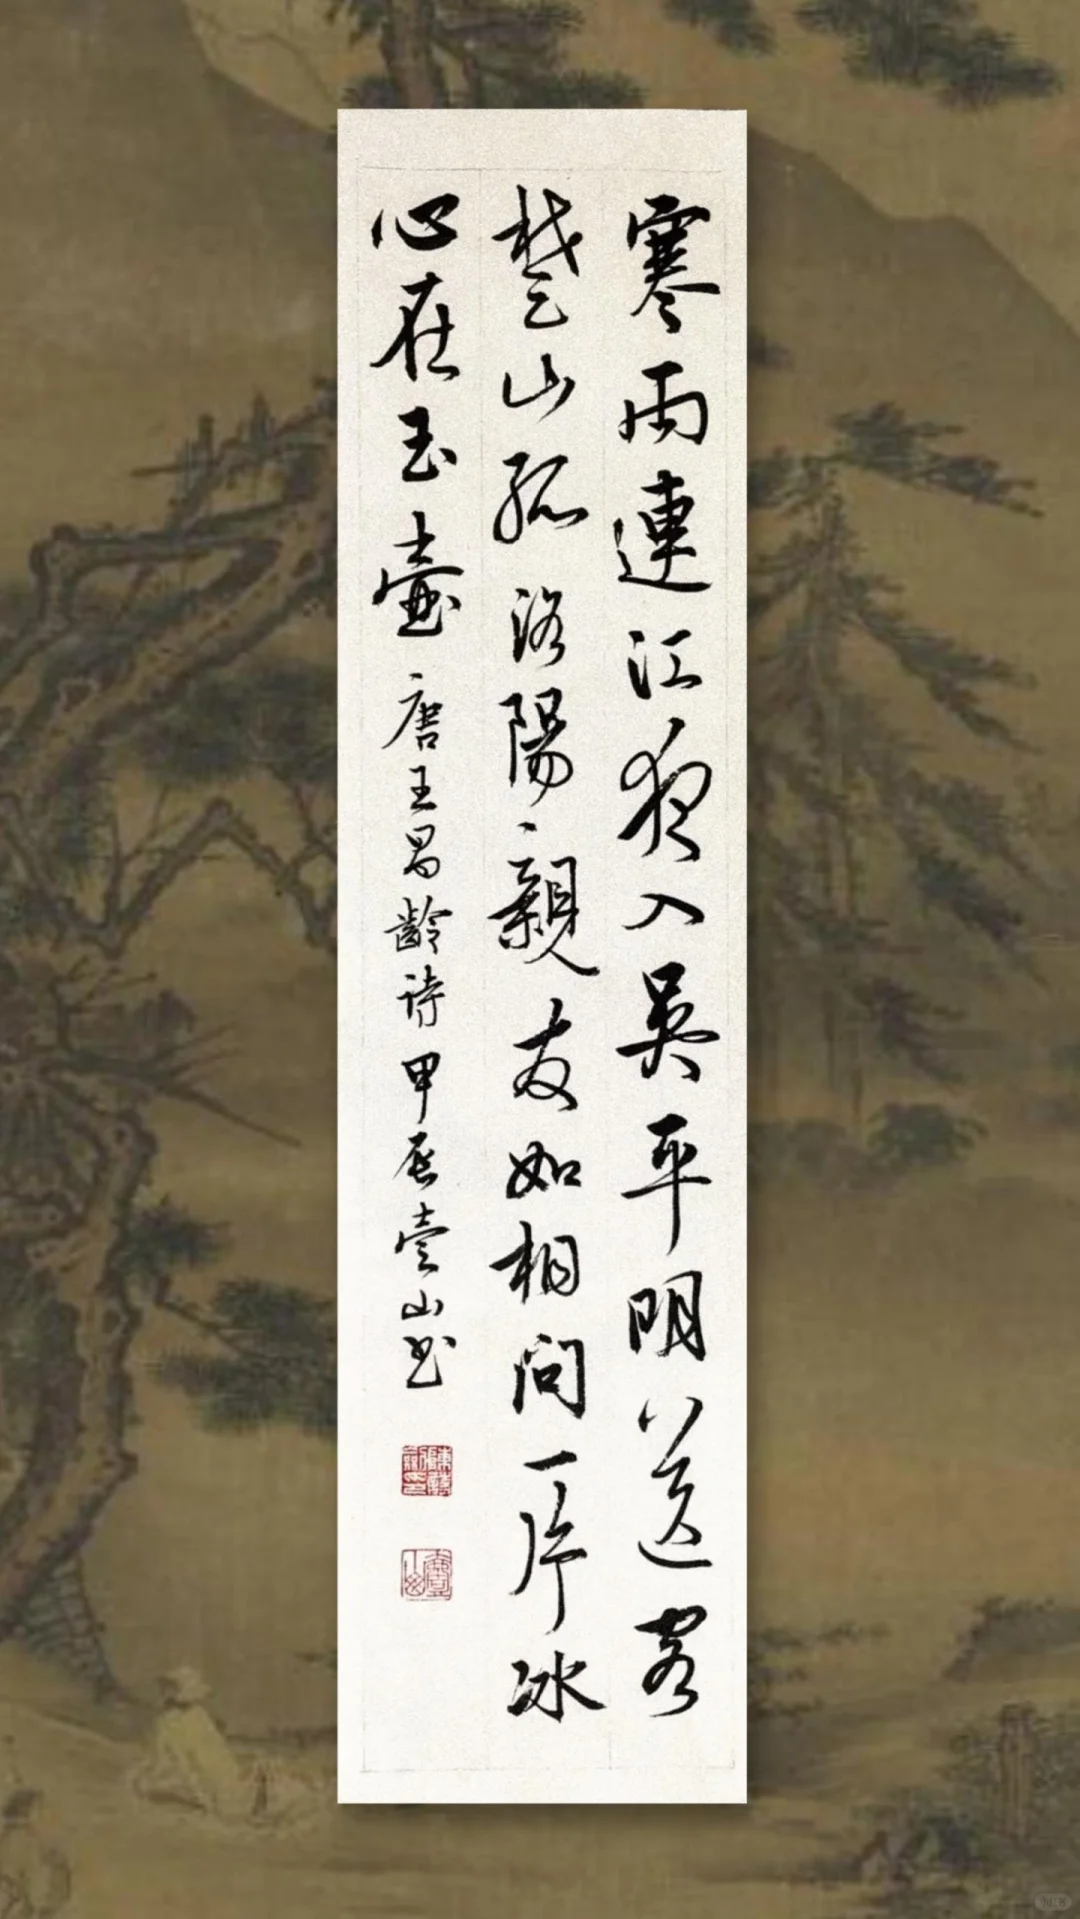 寒雨連江夜入吳平明送客
楚山孤洛陽親友如相問一片冰
心在玉壺
唐王昌齡詩甲辰壹山书